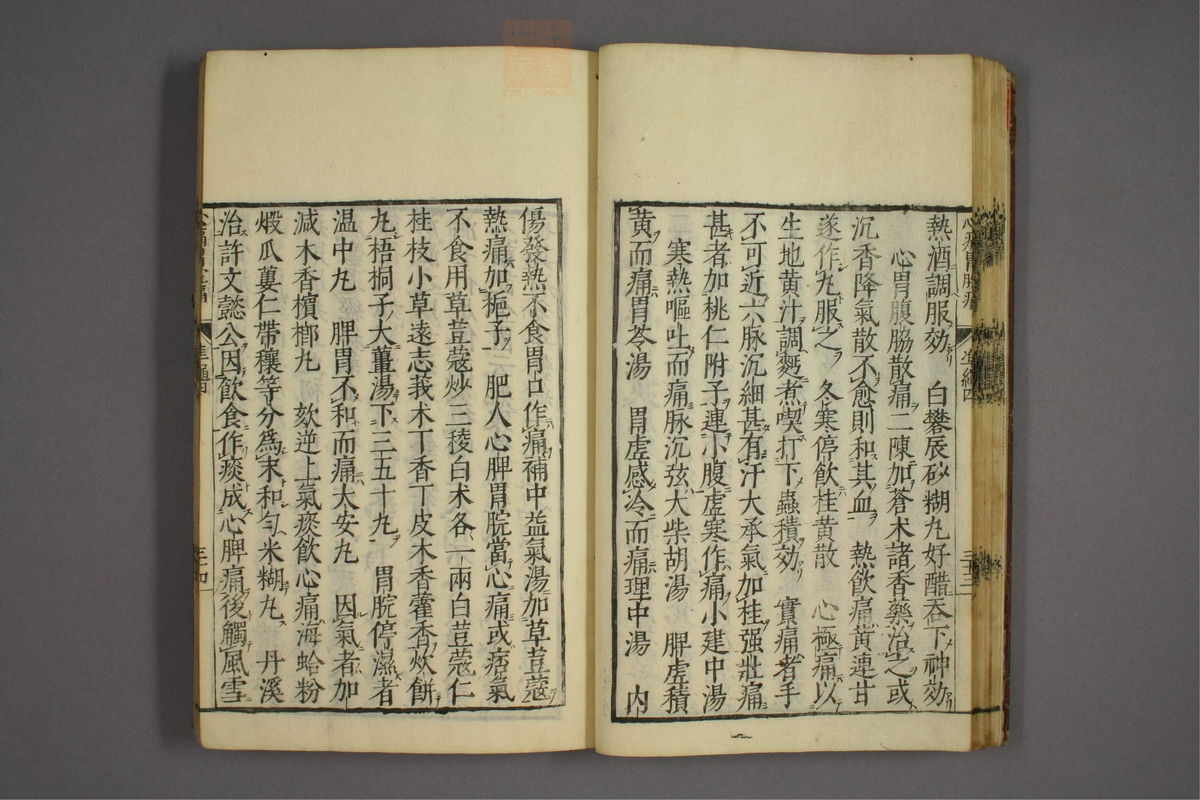 熱酒調服効　白礬辰砂糊丸好醋吞下神効
心胃腹脇散痛二陳加蒼术諸香藥治之或
沉香降氣散不愈則和其血　熱飲痛黄連甘
遂作丸服之　冬寒停飲桂黄散　心極痛以
生地黄汁調麪煮喫打下蟲積効　實痛者手
不可近六脉沉細甚有汗大承氣加桂强壯痛
甚者加桃仁附子連小腹虚寒作痛小建中湯
寒熱嘔吐而痛脉沉弦大柴胡湯　脾虚積
黄而痛胃苓湯　胃虚感冷而痛理中湯　内
傷發熱不食胃口作痛補中益氣湯加草荳蔲
熱痛加梔子　肥人心脾胃脘當心痛或痞氣
不食用草荳蔲炒三稜白术各一兩白荳蔲仁
桂枝小草遠志莪术丁香丁皮木香藿香炊餅
丸梧桐子大薑湯下三五十丸　胃脘停濕者
温中丸　脾胃不和而痛大安丸　因氣者加
减木香檳榔丸　欬逆上氣痰飲心痛海蛤粉
煅瓜蔞仁帶穰等分爲末和勻米糊丸　丹溪
治許文懿公因飲食作痰成心脾痛後觸風雪